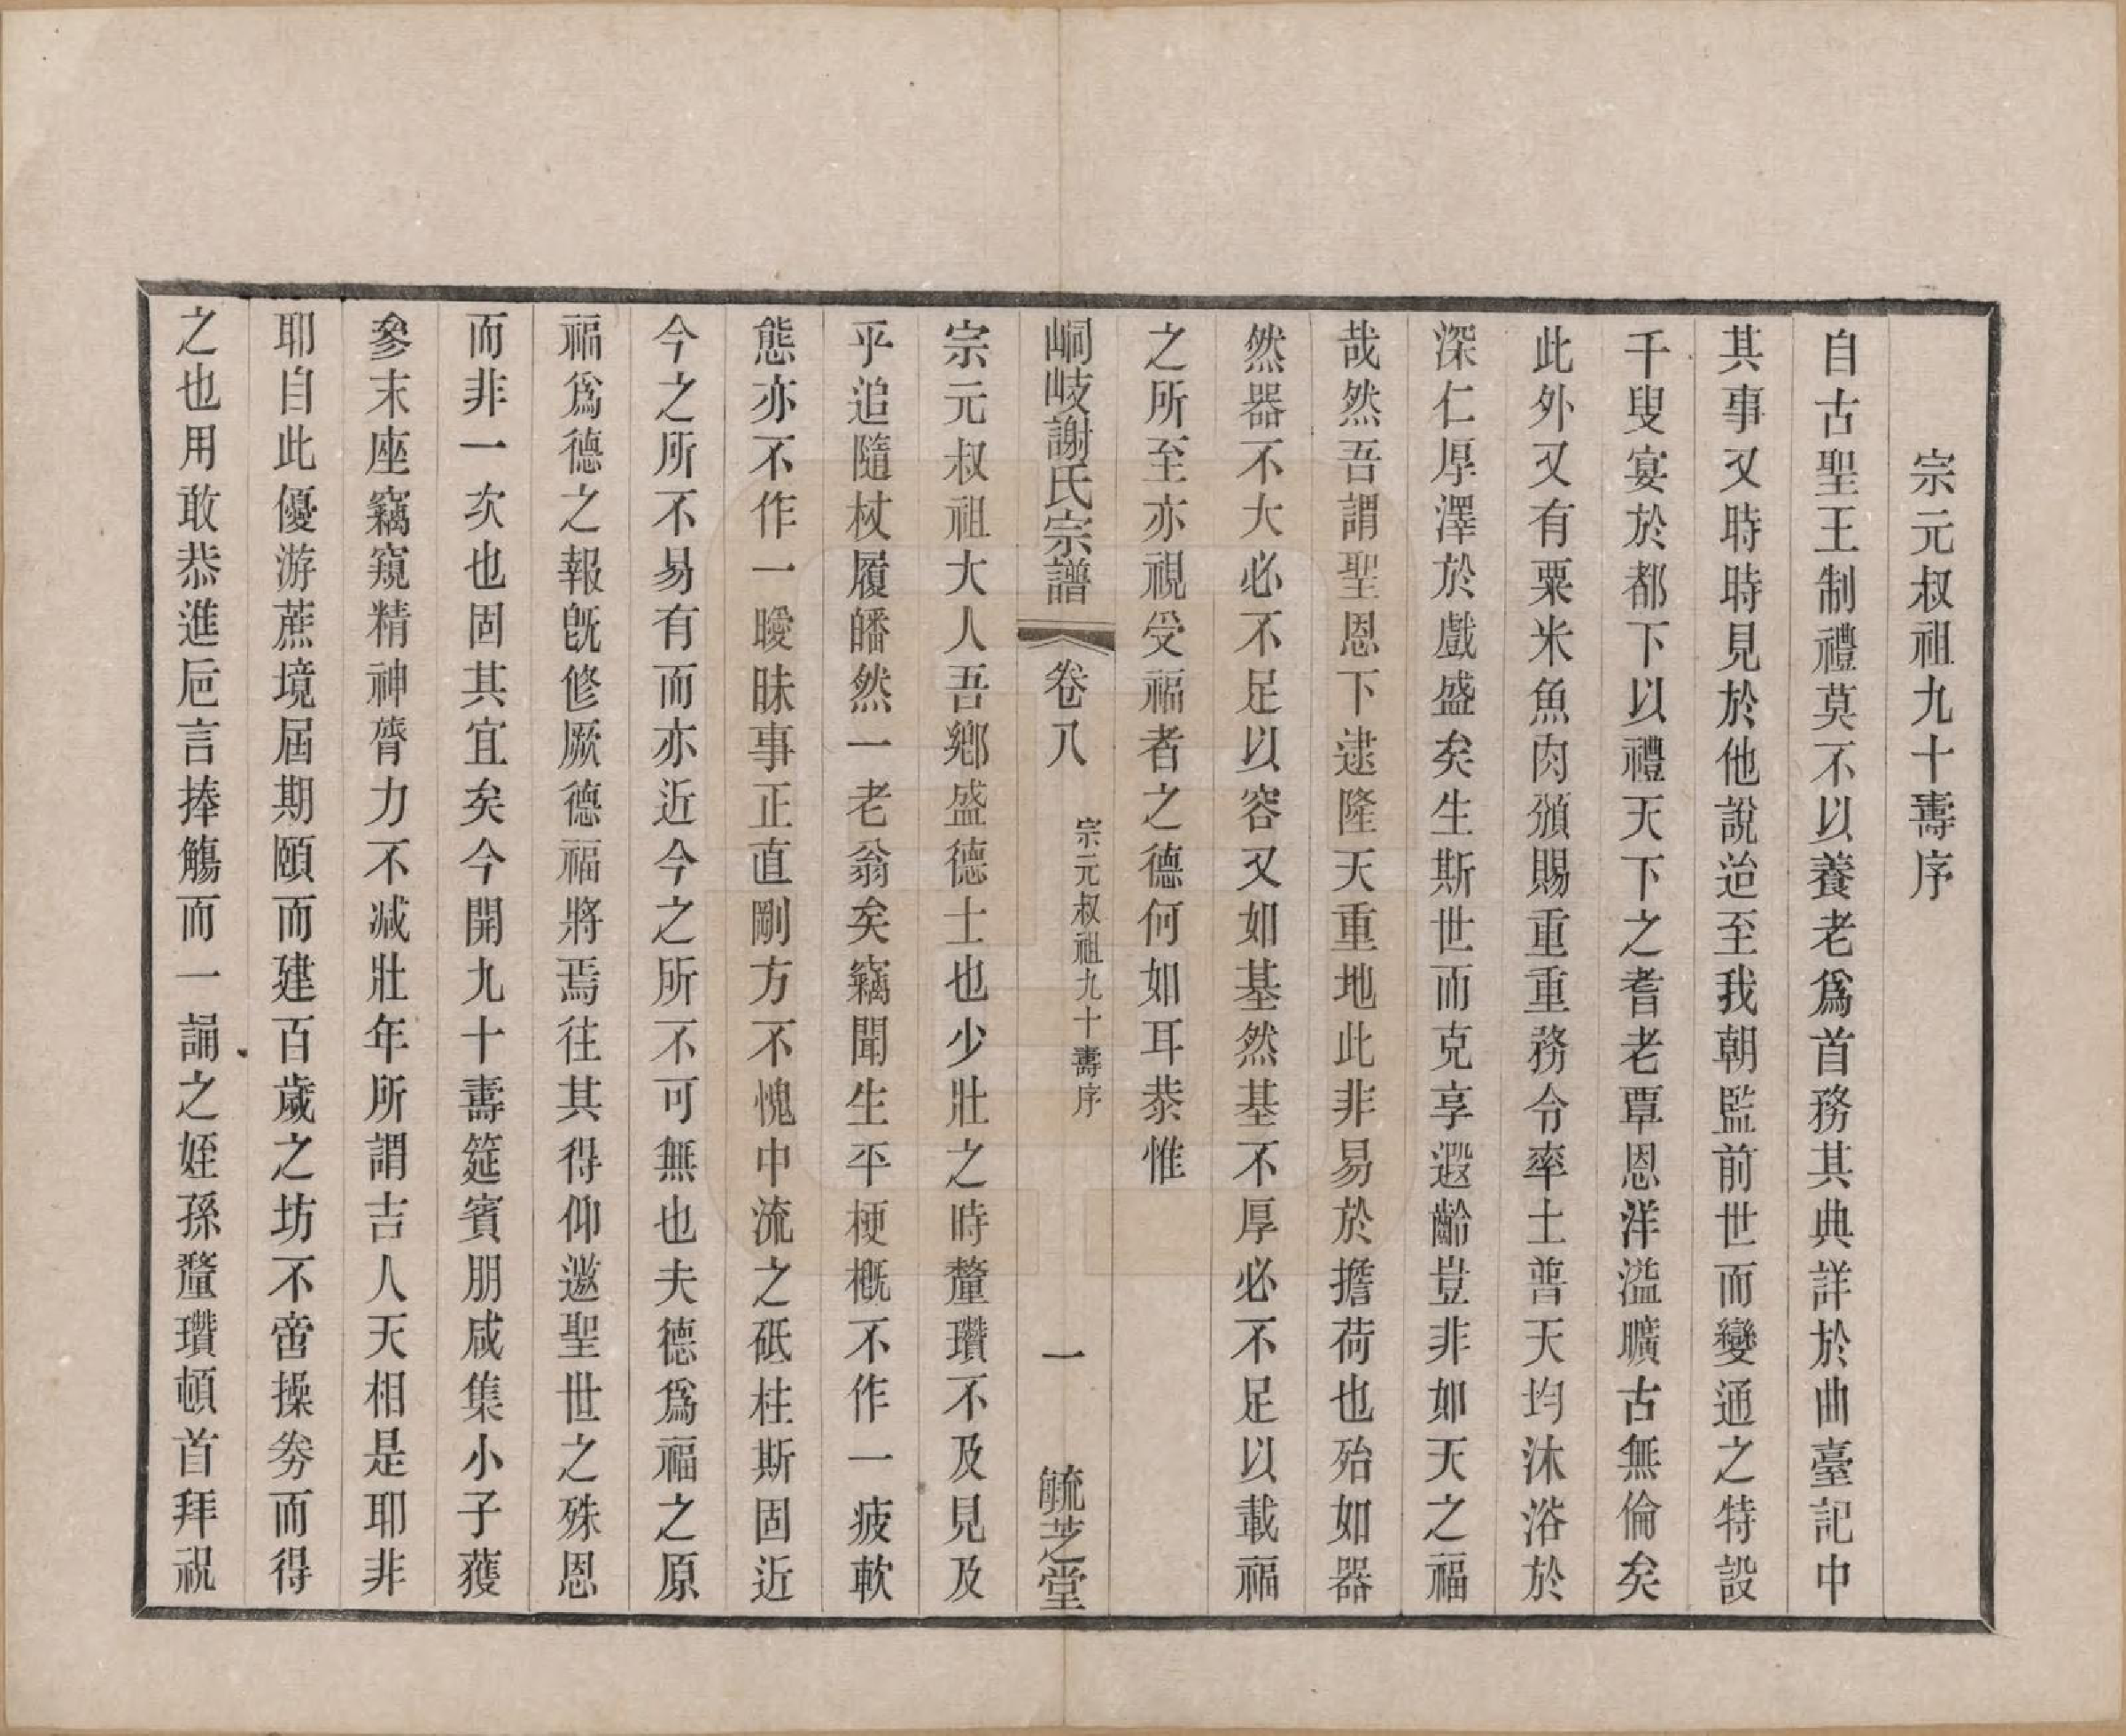 宗元叔祖九十壽序
自古聖王制禮莫不以養老爲首務其典詳於曲臺記中
其事又時時見於他說迨至我朝監前世而變通之特設
千叟宴於都下以禮天下之耆老覃恩洋溢曠古無倫矣
此外又有粟米魚肉頒賜重重務令率土普天均沐浴於
深仁厚澤於戲盛矣生斯世而克享遐齡豈非如天之福
哉然吾謂聖恩下逮隆天重地此非易於擔荷也殆如器
然器不大必不足以容又如基然基不厚必不足以載福
之所至亦視受福者之德何如耳恭惟
峒岐謝氏宗譜 卷八 宗元叔祖九十壽序 一 毓芝堂
宗元叔祖大人吾鄉盛德士也少壯之時釐瓚不及見及
乎追隨杖履皤然一老翁矣竊聞生平梗概不作一疲軟
態亦不作一曖昧事正直剛方不愧中流之砥柱斯固近
今之所不易有而亦近今之所不可無也夫德爲福之原
福爲德之報旣修厥德福將焉往其得仰邀聖世之殊恩
而非一次也固其宜矣今開九十壽筵賓朋咸集小子獲
參末座竊窺精神膂力不減壯年所謂吉人天相是耶非
耶自此優游蔗境屆期頤而建百歲之坊不啻操券而得
之也用敢恭進巵言捧觴而一誦之姪孫釐瓚頓首拜祝